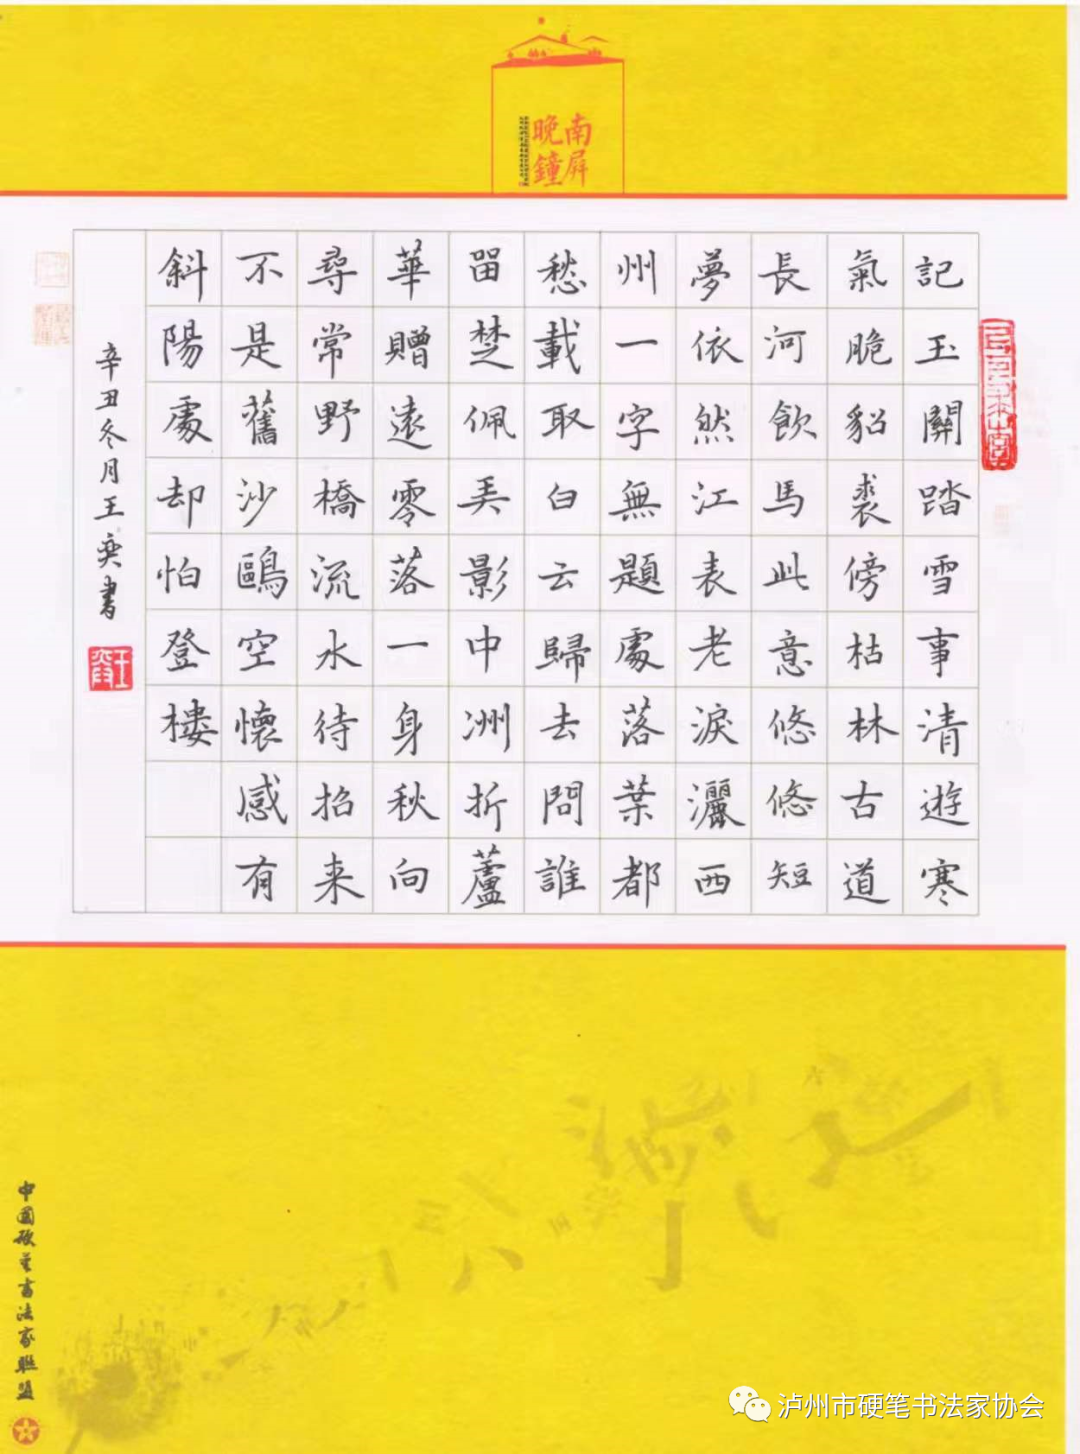 南屏
晚鐘
記玉關踏雪事清遊寒
氣脆貂裘傍枯林古道
長河飲馬此意悠悠短
夢依然江表老淚灑西
州一字無題處落葉都
愁載取白云歸去問誰
留楚佩弄影中洲折蘆
華贈遠零落一身秋向
尋常野橋流水待招来
不是舊沙鷗空懷感有
斜陽處却怕登樓
辛丑冬月王奕書
中國硬筆書法家聯盟
泸州市硬笔书法家协会